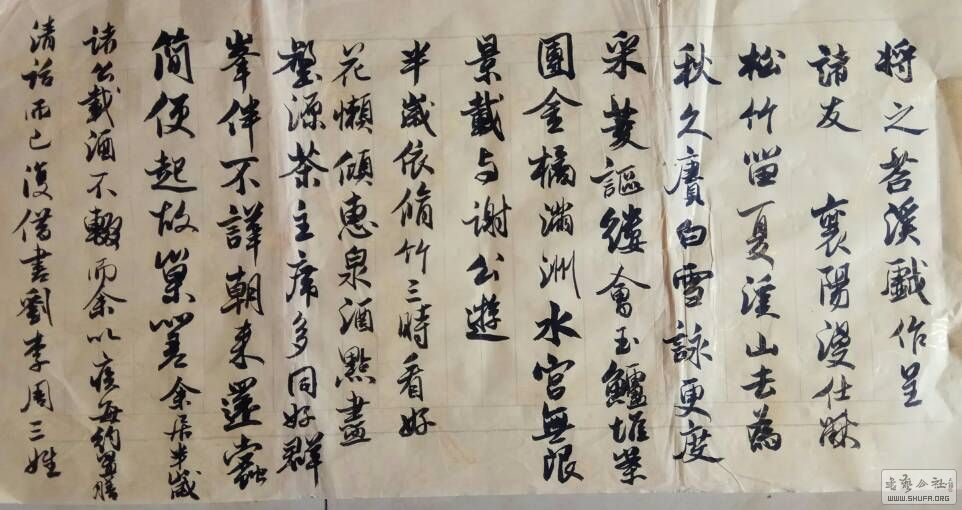 將之苕溪戲作呈
諸友 襄陽漫仕黻
松竹留夏溪山去為
秋久賡白雪詠更度
采菱謳縷會玉鱸堆案
團金橘滿洲水宮無限
景載与謝公遊
半歲依脩竹三時看好
花懶傾惠泉酒點盡
壑源茶主席多同好群
峯伴不譁朝來還蠹
簡便起故巢嗟余居半歲
諸公載酒不輟而余以疾每約置膳
清話而已復借書劉李周三姓
WWW.SHUFA.ORG